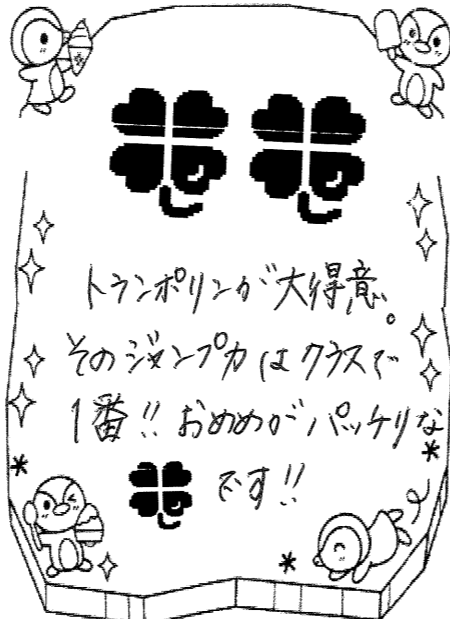 トランポリンが大得意。
そのジャンプ力はクラスで
1番!! おめめがパッチリな
です!!